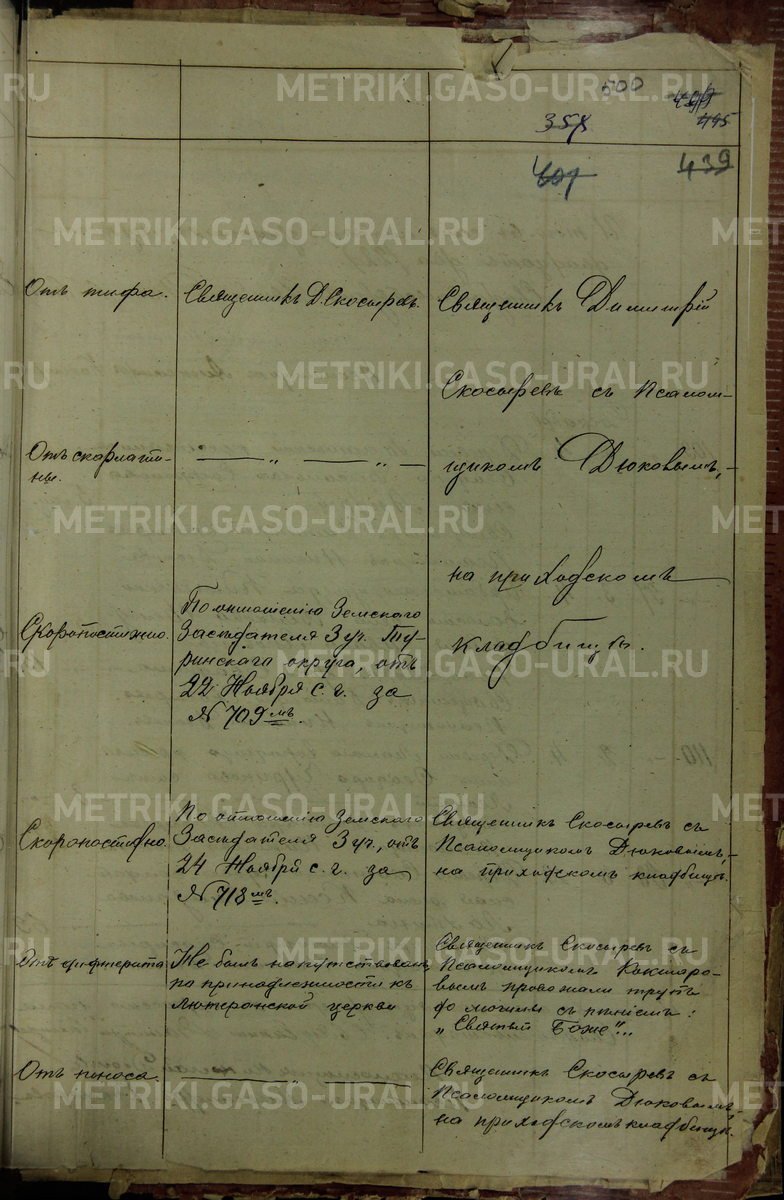 500
357
493
445
401
439
Отъ тифа.
Священникъ Д. Скосыревъ.
Священникъ Димитрій
Скосыревъ съ Псалом-
щикомъ Дюковымъ,-
на приходскомъ
кладбищѣ.
Отъ скарлати-
ны.
— „ — „ —
Скоропостижно.
По отношенію Земскаго
Засѣдателя 3 уч. Ту-
ринскаго округа, отъ
22 Ноября с. г. за
№ 709мъ.
Скоропостижно.
По отношенію Земскаго
Засѣдателя 3 уч., отъ
24 Ноября с. г. за
№ 713мъ.
Священникъ Скосыревъ съ
Псаломщикомъ Дюковымъ,-
на приходскомъ кладбищѣ.
Отъ дифтерита
Не былъ напутствованъ,
по принадлежности къ
лютеранской церкви
Священникъ Скосыревъ съ
Псаломщикомъ Кокшаро-
вымъ провожали трупъ
до могилы съ пѣніемъ:
„Святый Боже"...
Отъ поноса.
— „ —
Священникъ Скосыревъ съ
Псаломщикомъ Дюковымъ-
на приходскомъ кладбищѣ.
METRIKI.GASO-URAL.RU